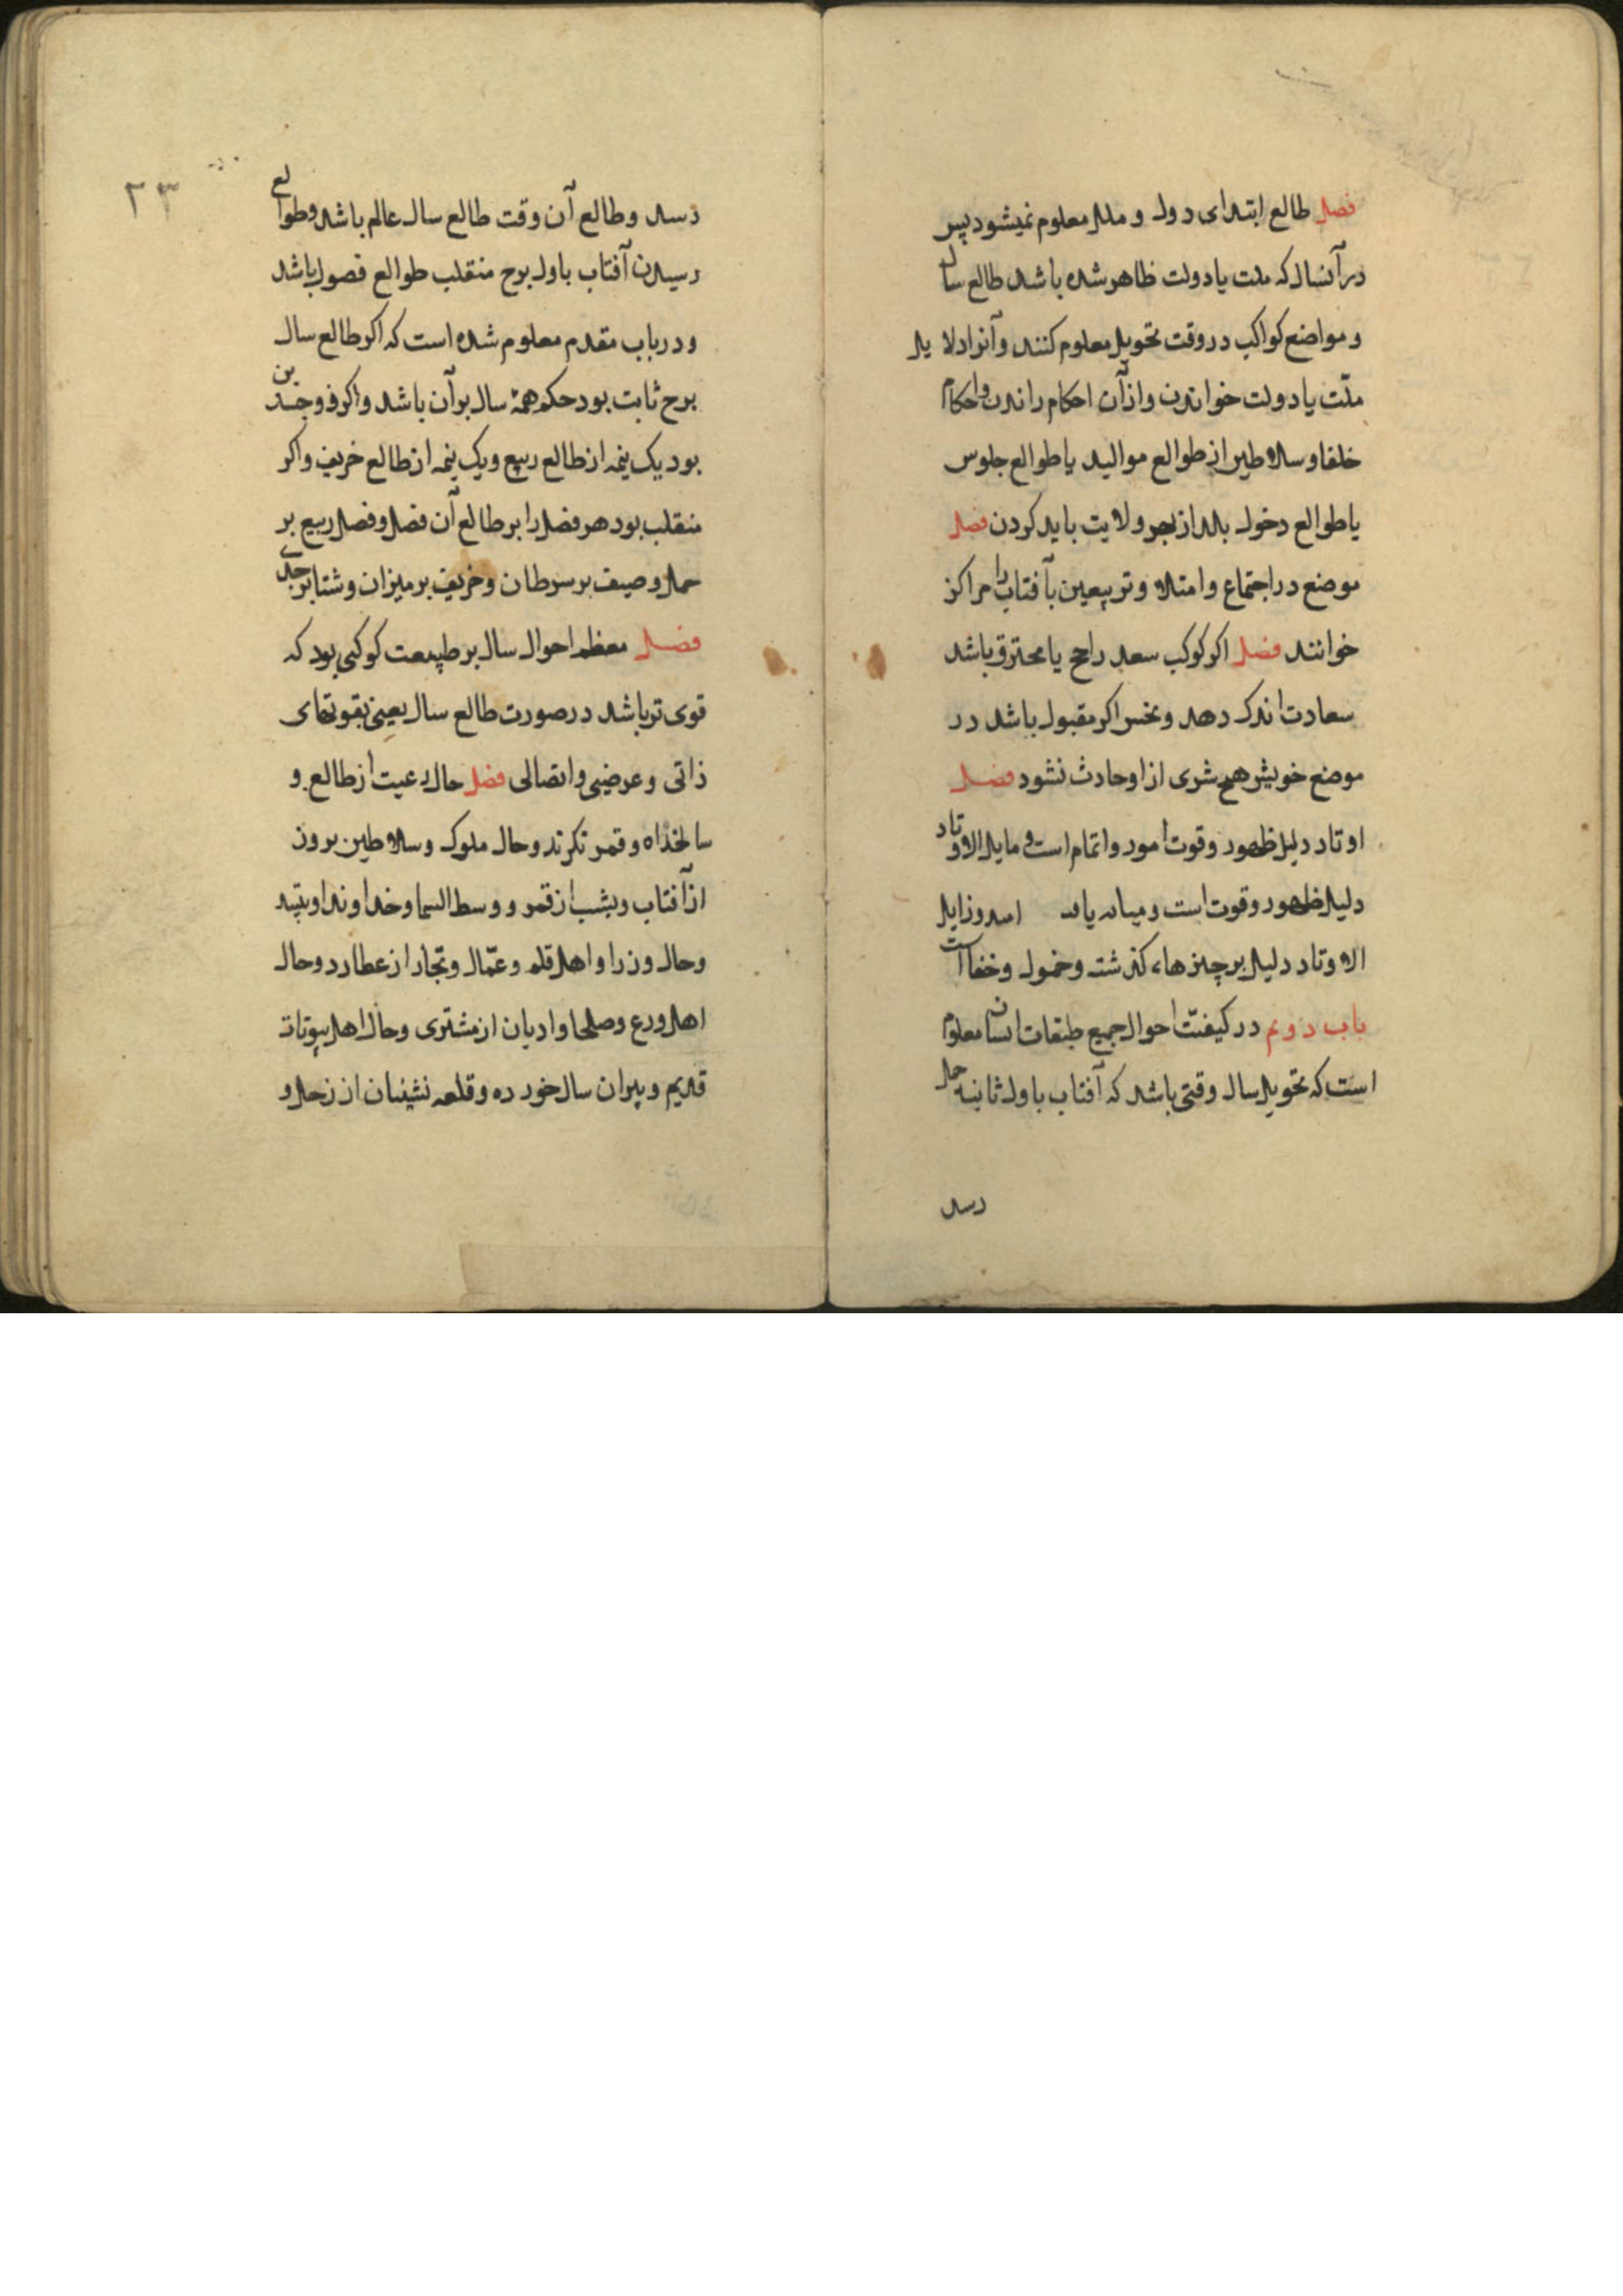 فصل طالع ابتدای دول و ملل معلوم نمیشود پس
در آنسال که ملت یا دولت ظاهر شده باشد طالع سال
و مواضع کواکب در وقت تحویل معلوم کنند و آنرا دلایل
ملّت یا دولت خوانند و از آن احکام رانند و احکام
خلفا و سلاطین از طوالع موالید یا طوالع جلوس
یا طوالع دخول بلد از بهر ولایت باید کردن فصل
موضع در اجتماع و امتلا و تربیعین بآفتاب را مراکز
خوانند فصل اکر کوکب سعد راجع یا محترق باشد
سعادت اندک دهد و نحس اکر مقبول باشد در
موضع خویش هیچ شری از او حادث نشود فصل
اوتاد دلیل ظهور و قوت امور و اتمام است و مایل الاوتاد
دلیل ظهور و قوت است و زایل
الاوتاد دلیل بر چیزهاء کذشته و خمول و خفا است
باب دوم در کیفیّت احوال جمیع طبقات انسان معلوم
است که تحویل سال وقتی باشد که آفتاب باول ثانیه حمل
رسد
۲۳
رسد و طالع آن وقت طالع سال عالم باشد و طوالع
رسیدن آفتاب باول برج منقلب طوالع فصول باشد
و در باب مقدم معلوم شده است که اکر طالع سال
برج ثابت بود حکم همهٔ سال بر آن باشد و اکر ذو جسدین
بود یک نیمه از طالع ربیع و یک نیمه از طالع خریف و اکر
منقلب بود هر فصل را بر طالع آن فصل و فصل ربیع بر
حمل و صیف بر سرطان و خریف بر میزان و شتا بر جدی
فصل معظم احوال سال بر طبیعت کوکبی بود که
قوی تر باشد در صورت طالع سال یعنی بقوتهای
ذاتی و عرضی و اتصالی فصل حال رعیت از طالع و
سالخداه و قمر نکرند و حال ملوک و سلاطین بروز
از آفتاب و بشب از قمر و وسط السما و خداوند او بیند
و حال وزرا و اهل قلم و عمّال و تجار از عطارد و حال
اهل ورع و صلحا و ادیان از مشتری و حال اهل بیوتات
قدیم و پیران سال خورده و قلعه نشینان از زحل و